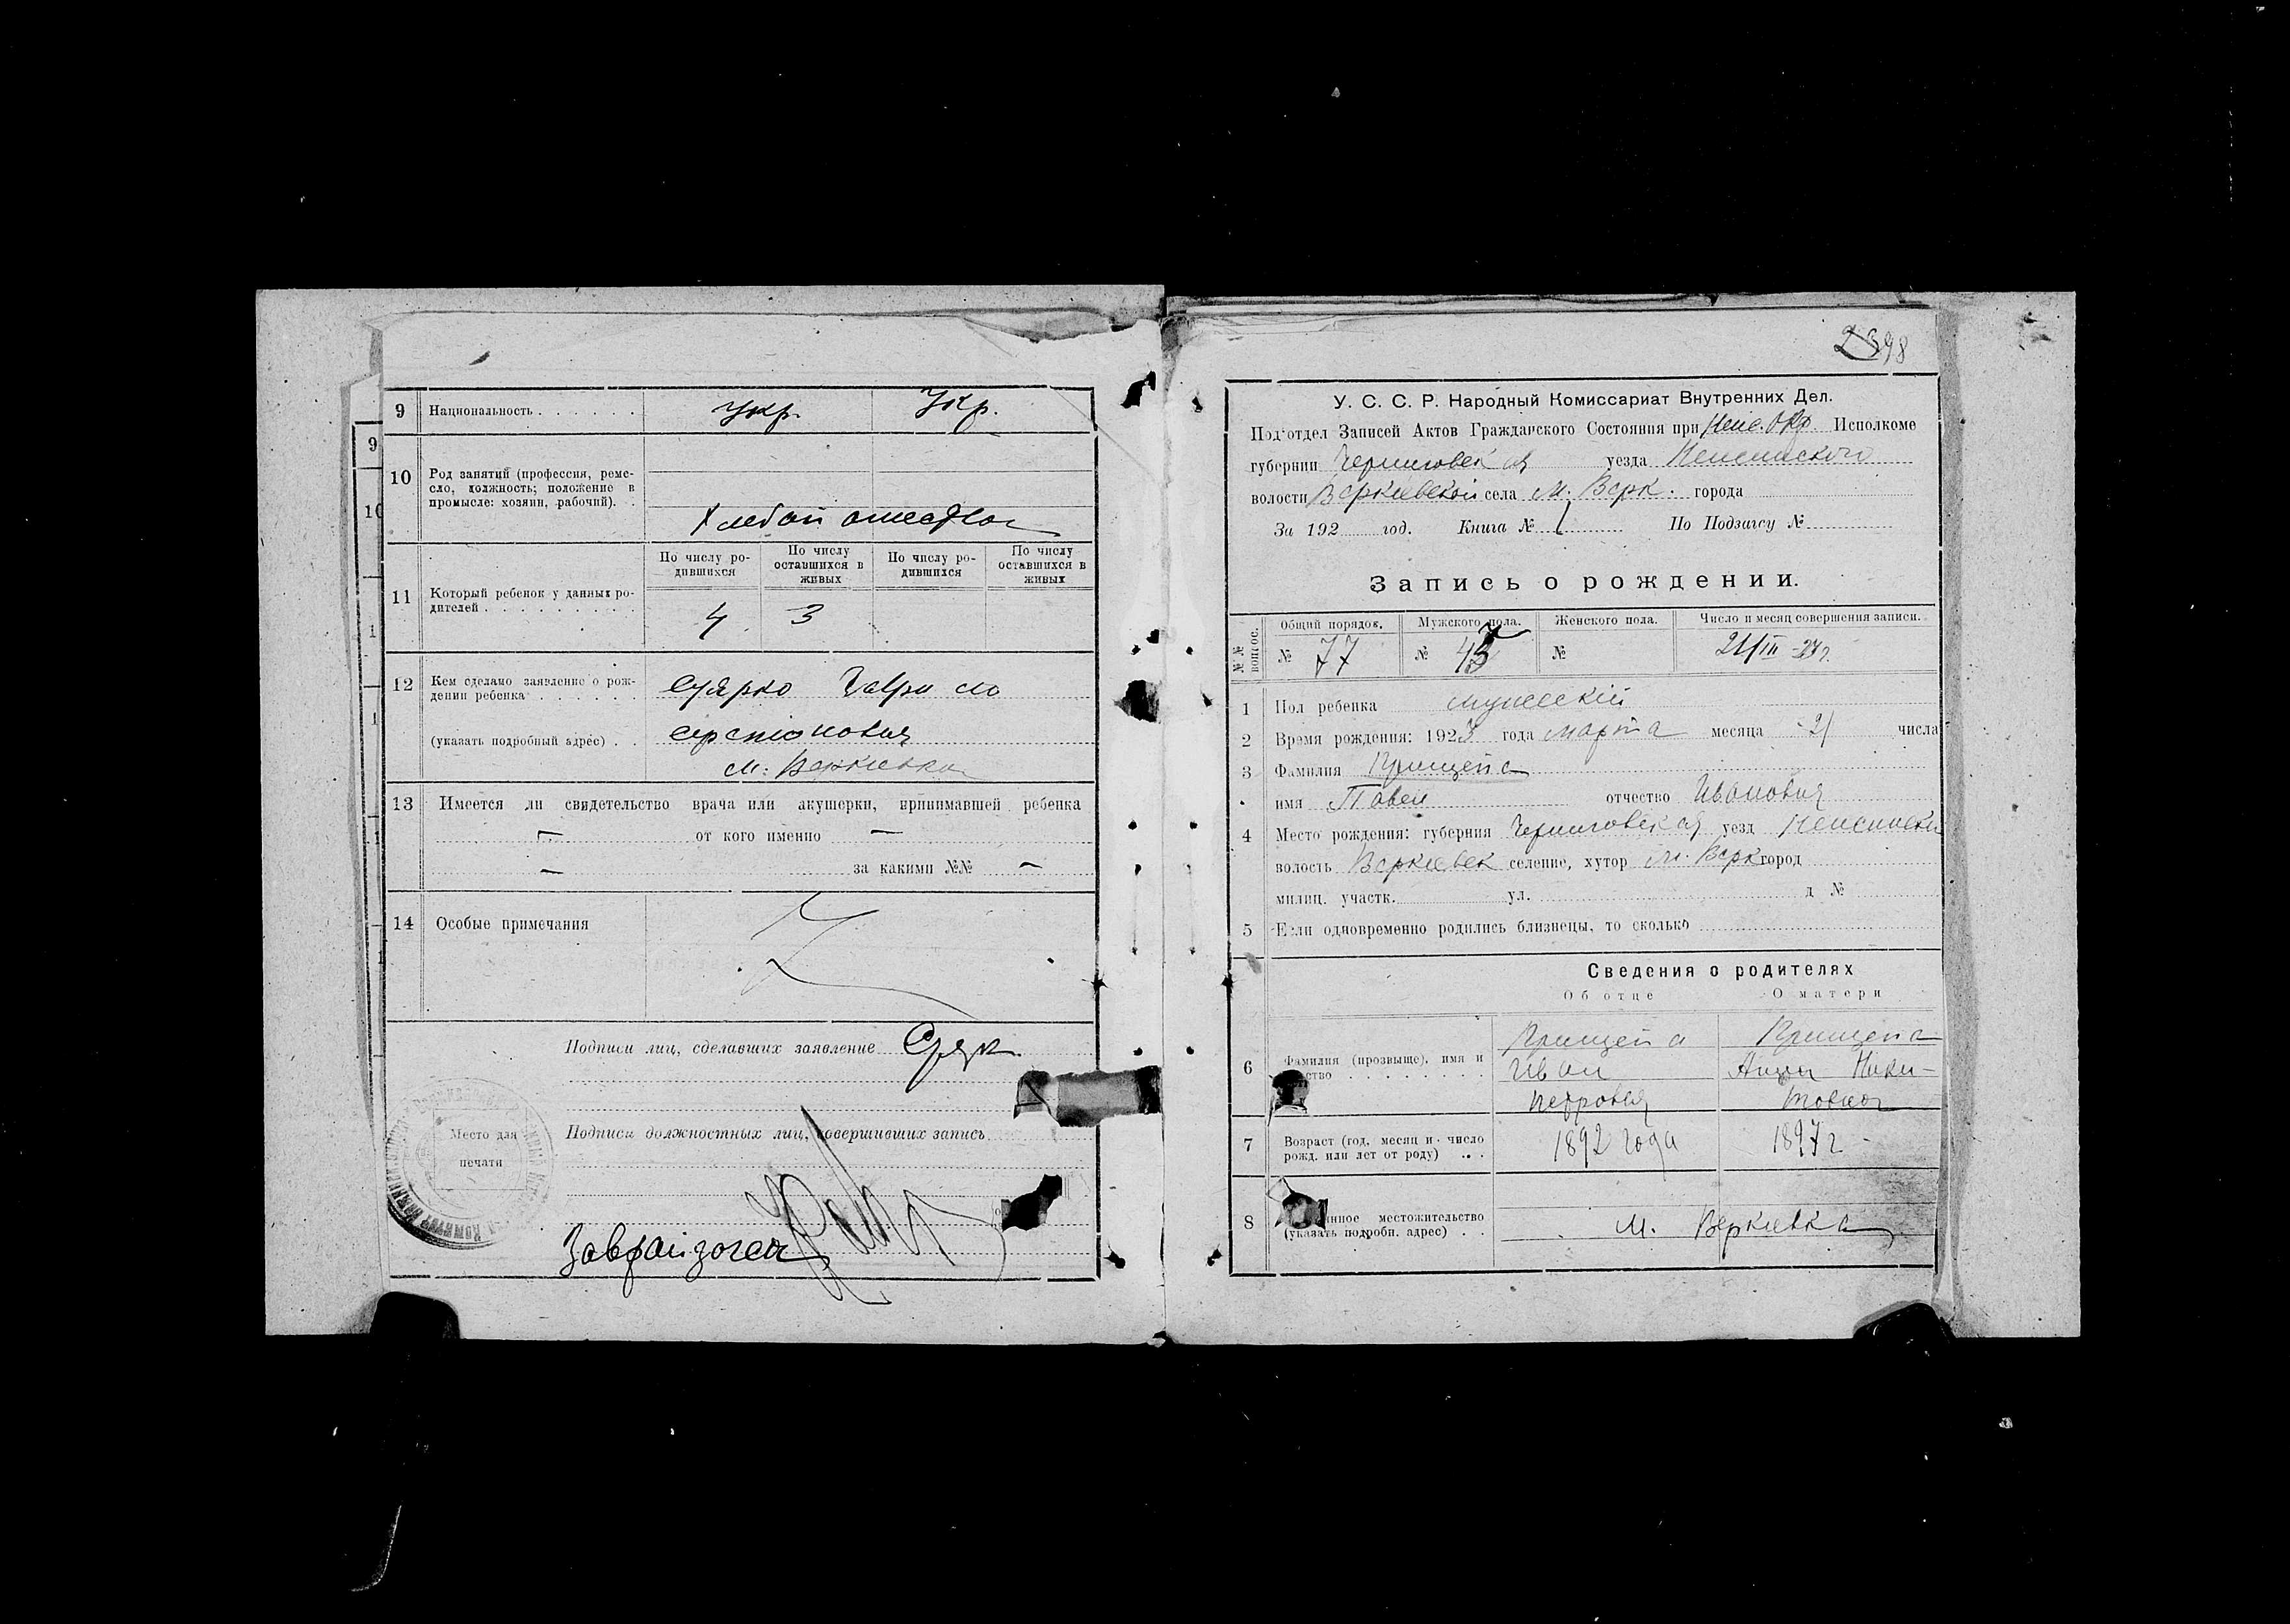 9 Национальность . . . . . . Укр. Укр.
10 Род занятий (профессия, реме-
сло, должность; положение в
промысле: хозяин, рабочий). .
Хлебопашество
11 Который ребенок у данных ро-
дителей . . . . . . . . .
По числу ро-
дившихся
По числу
оставшихся в
живых
По числу ро-
дившихся
По числу
оставшихся в
живых
4 3
12 Кем сделано заявление о рож-
дении ребенка . . . . .
(указать подробный адрес) . .
Гаврило
м. Веркиевка
13 Имеется ли свидетельство врача или акушерки, принимавшей ребенка
— от кого именно —
— за какими №№ —
14 Особые примечания
Подписи лиц, сделавших заявление
Место для
печати
Подписи должностных лиц, совершивших запись
9
10
398
У. С. С. Р. Народный Комиссариат Внутренних Дел.
Под'отдел Записей Актов Гражданского Состояния при Неж. Окр. Исполкоме
губернии Черниговская уезда Неженского
волости Веркиевской села м. Верк. города
За 192 год. Книга № 1 По Подзагсу №
Запись о рождении.
№№ вопрос.
Общий порядок. Мужского пола. Женского пола. Число и месяц совершения записи.
№ 77 № № 21/III – 23 г.
1 Пол ребенка мужеский
2 Время рождения: 1923 года марта месяца 21 числа
3 Фамилия Прищепа
имя Павел отчество Иванович
4 Место рождения: губерния Черниговская уезд Неженски
волость Веркиевск селение, хутор м. Верк город
милиц. участк. ул. д №
5 Если одновременно родились близнецы, то сколько
Сведения о родителях
Об отце О матери
6 Фамилия (прозвище), имя и
ство . . . . . . . .
Прищепа
Иван
Петрович
Прищепа
Ники-
товна
7 Возраст (год, месяц и число
рожд. или лет от роду) . . .
1892 года 1897 г.
8 нное местожительство
(указать подробн. адрес) . .
м. Веркиевка